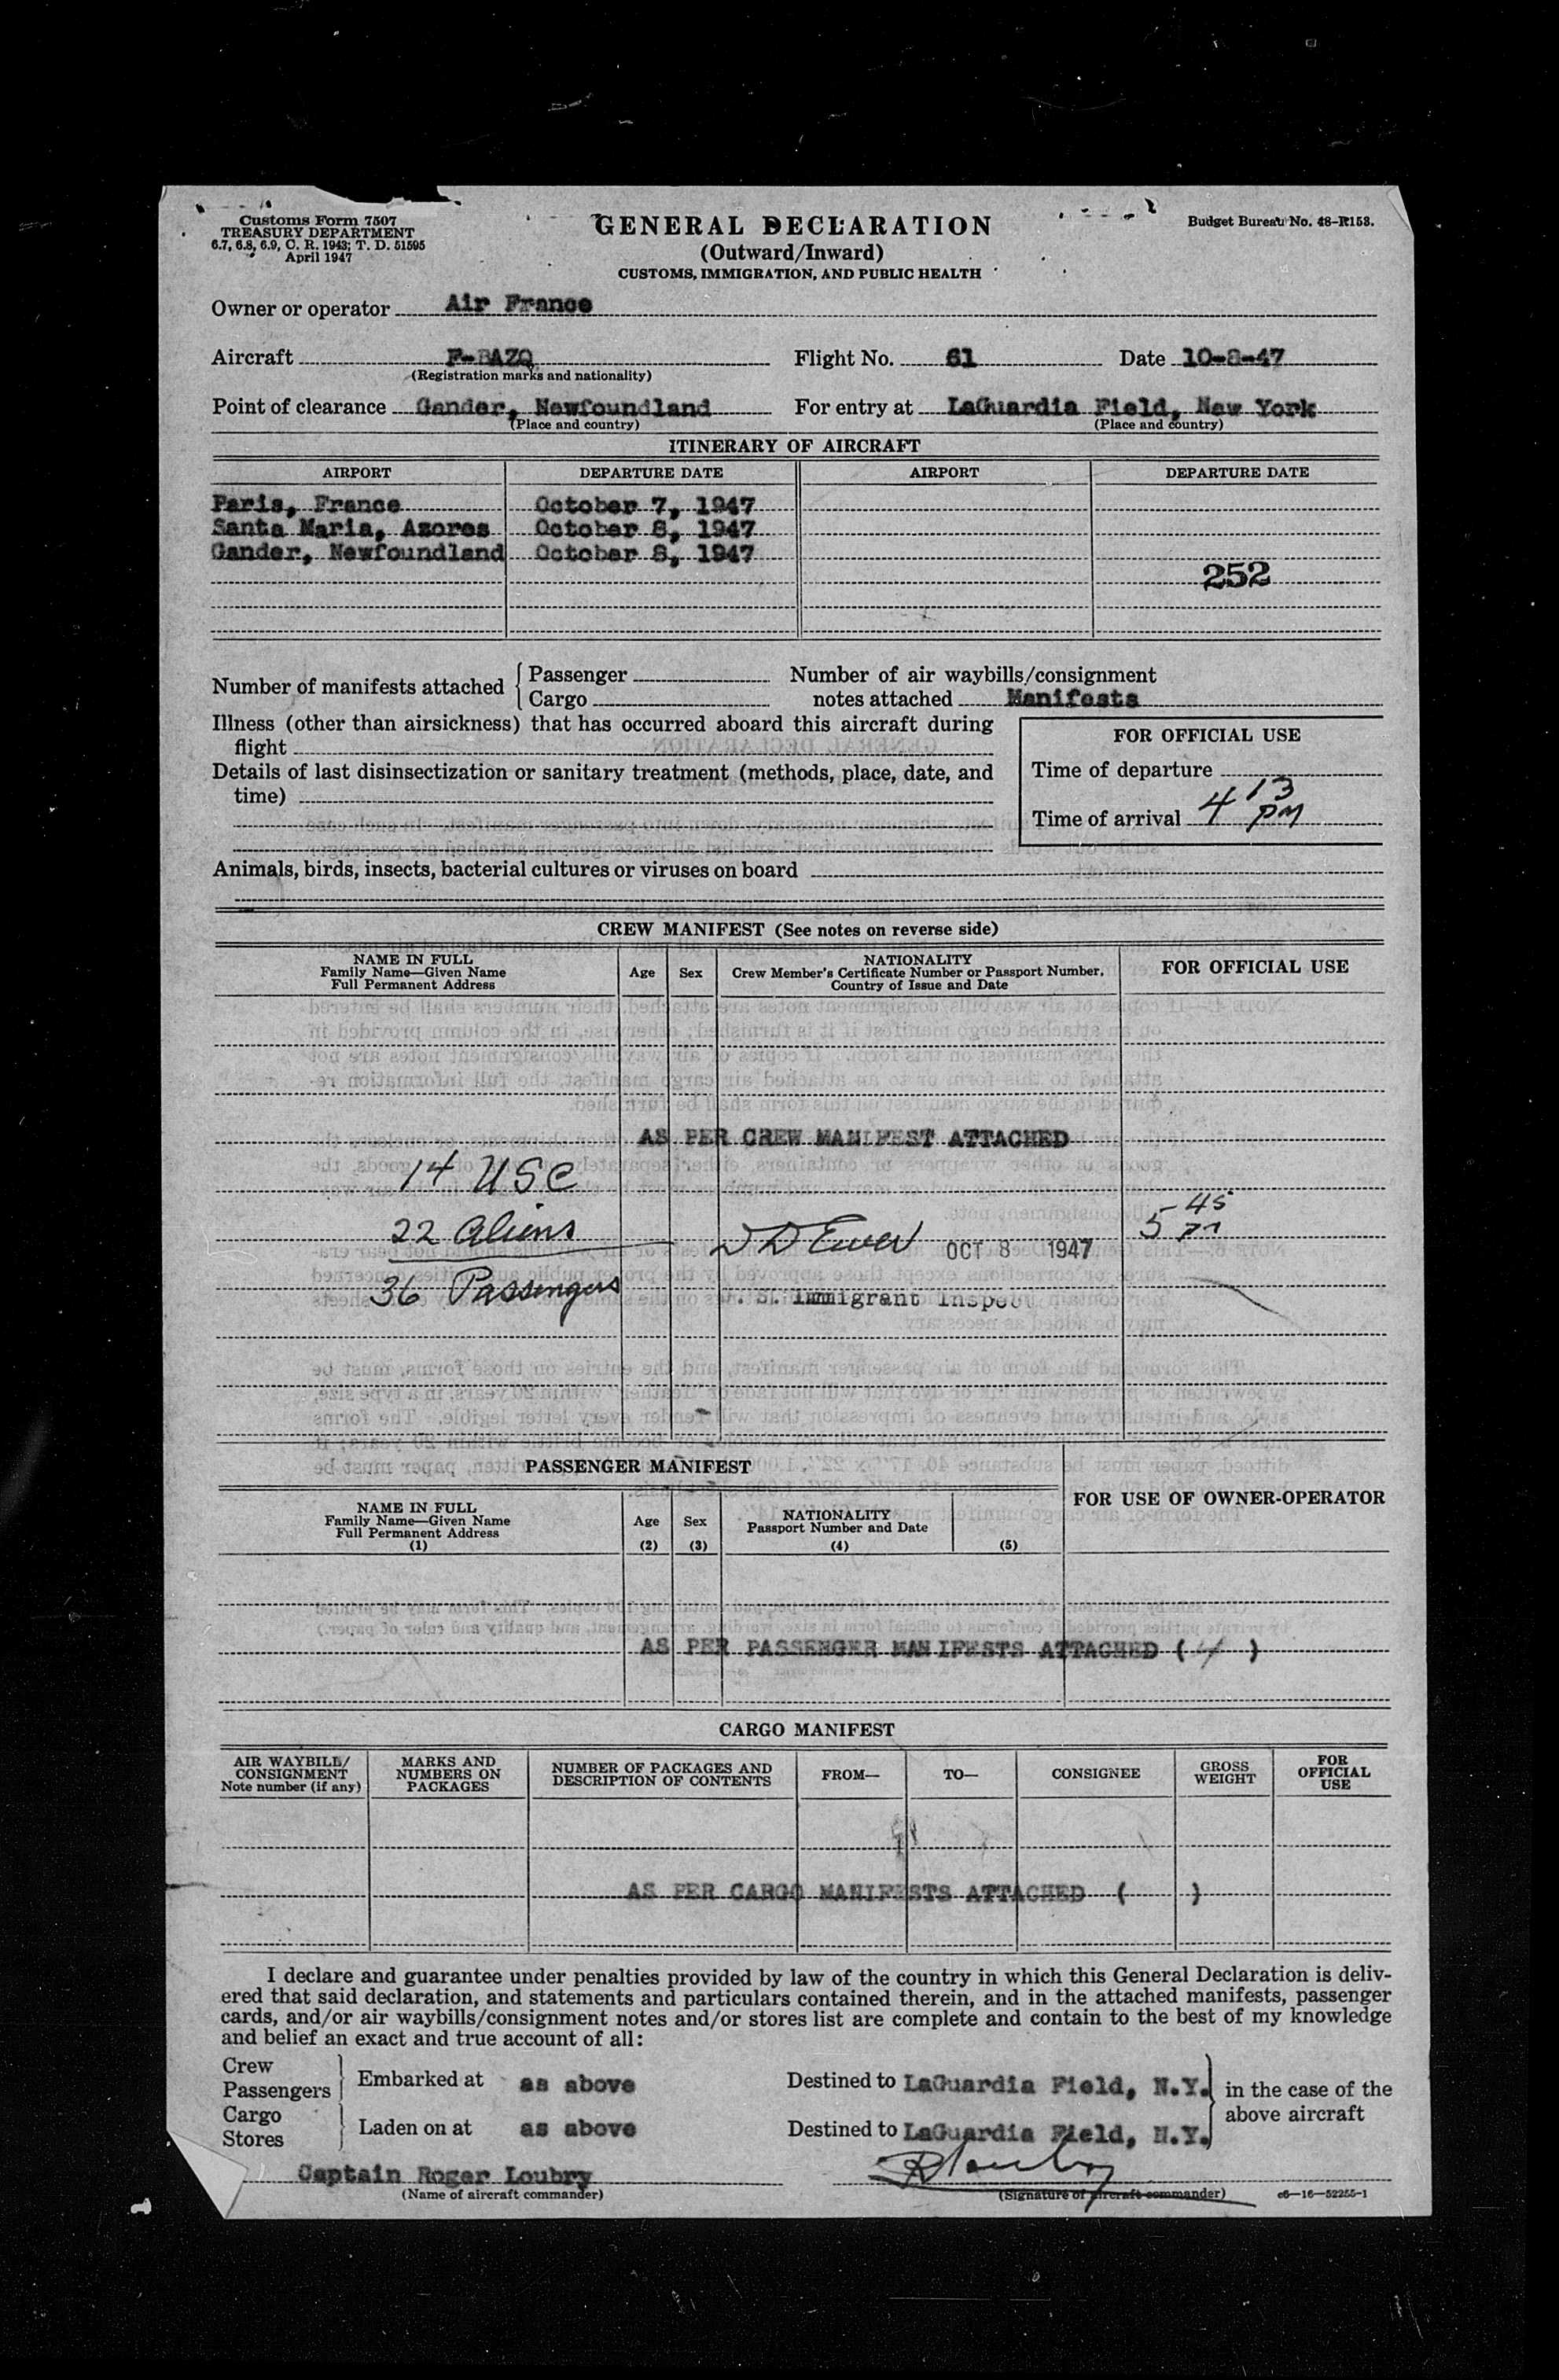 Customs Form 7507
TREASURY DEPARTMENT
6.7, 6.8, 6.9, C. R. 1943; T. D. 51595
April 1947
GENERAL DECLARATION
(Outward/Inward)
CUSTOMS, IMMIGRATION, AND PUBLIC HEALTH
Budget Bureau No. 48-R153.
Owner or operator Air France
Aircraft F-BAZQ Flight No. 61 Date 10-8-47
(Registration marks and nationality)
Point of clearance Gander, Newfoundland For entry at LaGuardia Field, New York
(Place and country) (Place and country)
ITINERARY OF AIRCRAFT
AIRPORT DEPARTURE DATE AIRPORT DEPARTURE DATE
Paris, France October 7, 1947
Santa Maria, Azores October 8, 1947
Gander, Newfoundland October 8, 1947
252
Number of manifests attached { Passenger Number of air waybills/consignment
Cargo notes attached Manifests
Illness (other than airsickness) that has occurred aboard this aircraft during
flight
Details of last disinsectization or sanitary treatment (methods, place, date, and
time)
FOR OFFICIAL USE
Time of departure
Time of arrival 4 13 PM
Animals, birds, insects, bacterial cultures or viruses on board
CREW MANIFEST (See notes on reverse side)
NAME IN FULL
Family Name—Given Name
Full Permanent Address
Age Sex
NATIONALITY
Crew Member's Certificate Number or Passport Number,
Country of Issue and Date
FOR OFFICIAL USE
AS PER CREW MANIFEST ATTACHED
14 USC
22 Aliens
OCT 8 1947
5 45
36 Passengers
S. Immigrant Inspec
PASSENGER MANIFEST
NAME IN FULL
Family Name—Given Name
Full Permanent Address
(1)
Age
(2)
Sex
(3)
NATIONALITY
Passport Number and Date
(4)
(5)
FOR USE OF OWNER-OPERATOR
AS PER PASSENGER MANIFESTS ATTACHED ( 4 )
CARGO MANIFEST
AIR WAYBILL/
CONSIGNMENT
Note number (if any)
MARKS AND
NUMBERS ON
PACKAGES
NUMBER OF PACKAGES AND
DESCRIPTION OF CONTENTS
FROM—
TO—
CONSIGNEE
GROSS
WEIGHT
FOR
OFFICIAL
USE
AS PER CARGO MANIFESTS ATTACHED ( )
I declare and guarantee under penalties provided by law of the country in which this General Declaration is deliv-
ered that said declaration, and statements and particulars contained therein, and in the attached manifests, passenger
cards, and/or air waybills/consignment notes and/or stores list are complete and contain to the best of my knowledge
and belief an exact and true account of all:
Crew
Passengers } Embarked at as above Destined to LaGuardia Field, N.Y.
Cargo
Stores } Laden on at as above Destined to LaGuardia Field, N.Y.
in the case of the
above aircraft
Captain Roger Loubry
(Name of aircraft commander)
RLoubry
(Signature of aircraft commander)
c6—16—52255-1